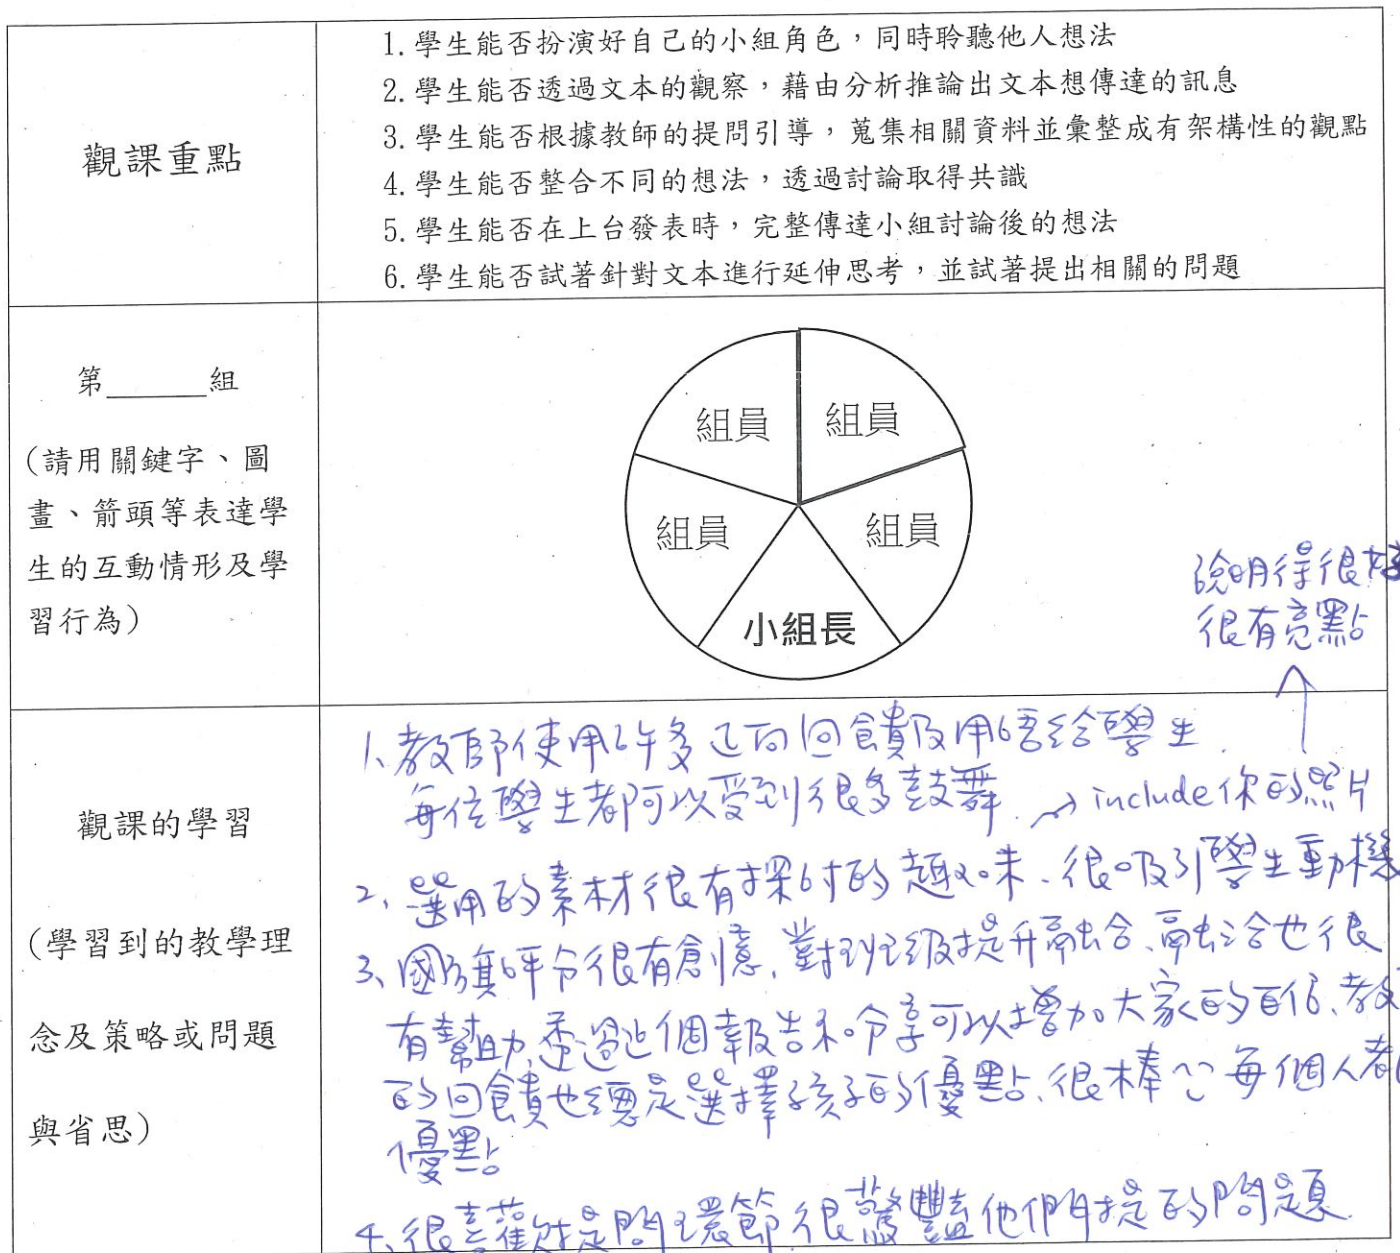 觀課重點
1.學生能否扮演好自己的小組角色，同時聆聽他人想法
2.學生能否透過文本的觀察，藉由分析推論出文本想傳達的訊息
3.學生能否根據教師的提問引導，蒐集相關資料並彙整成有架構性的觀點
4.學生能否整合不同的想法，透過討論取得共識
5.學生能否在上台發表時，完整傳達小組討論後的想法
6.學生能否試著針對文本進行延伸思考，並試著提出相關的問題
第______組
(請用關鍵字、圖
畫、箭頭等表達學
生的互動情形及學
習行為)
組員
組員
組員
組員
小組長
說明得很好
很有亮點
觀課的學習
(學習到的教學理
念及策略或問題
與省思)
1、教師使用許多正向回饋及用語給學生.
每位學生都可以受到很多鼓舞. → include你的照片
2、選用的素材很有探討的趣味、很吸引學生動機
3、國旗評分很有創意、對班級提升融合、融洽也很
有幫助、透過這個報告和分享可以增加大家的自信、教
的回饋也總是選擇孩子的優點、很棒 每個人都
優點
4、很喜歡 提問環節 很驚豔他們提的問題